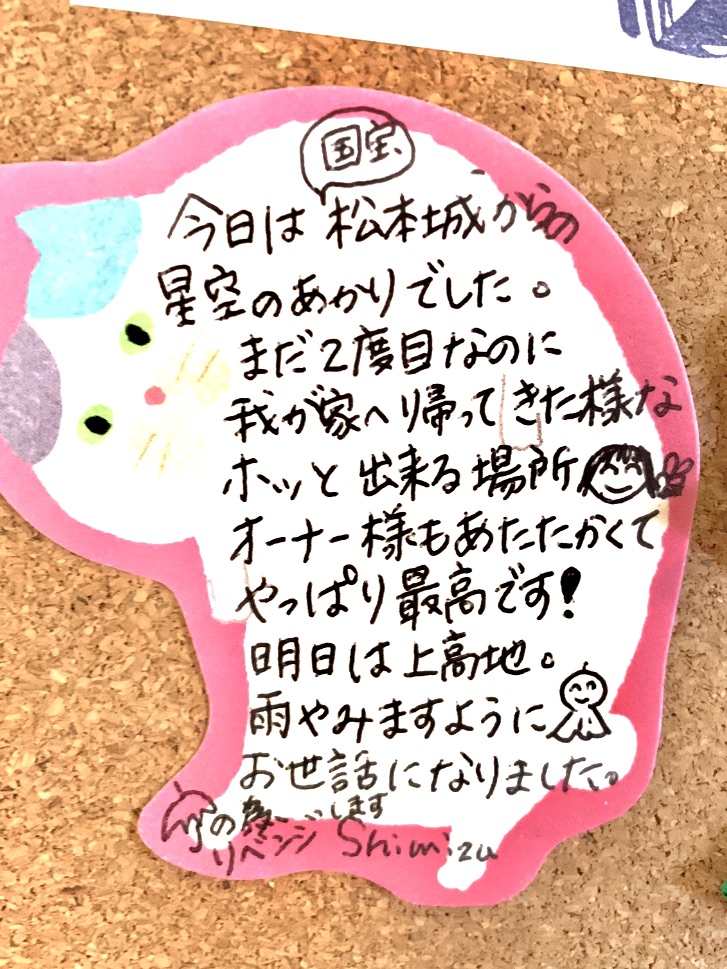 国宝
今日は松本城からの
星空のあかりでした。
まだ2度目なのに
我が家へり帰ってきた様な
ホッと出来る場所
オーナー様もあたたかくて
やっぱり最高です!
明日は上高地。
雨やみますように
お世話になりました。
の
リベンジします
Shimizu